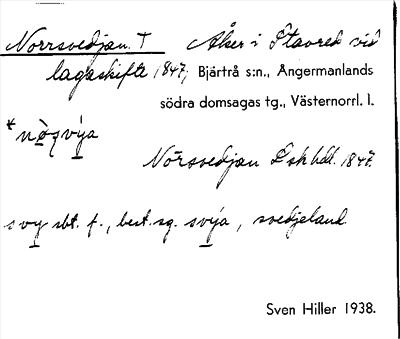 Norrsvedjan. † Åker i Stavred vid
lagaskifte 1847, Bjärtrå s:n., Ångermanlands
södra domsagas tg., Västernorrl. l.
*nòzvýa
Nörsvedjan Dskhdl. 1847.
svy sbt. f., best. sg. svýa, svedjeland.
Sven Hiller 1938.